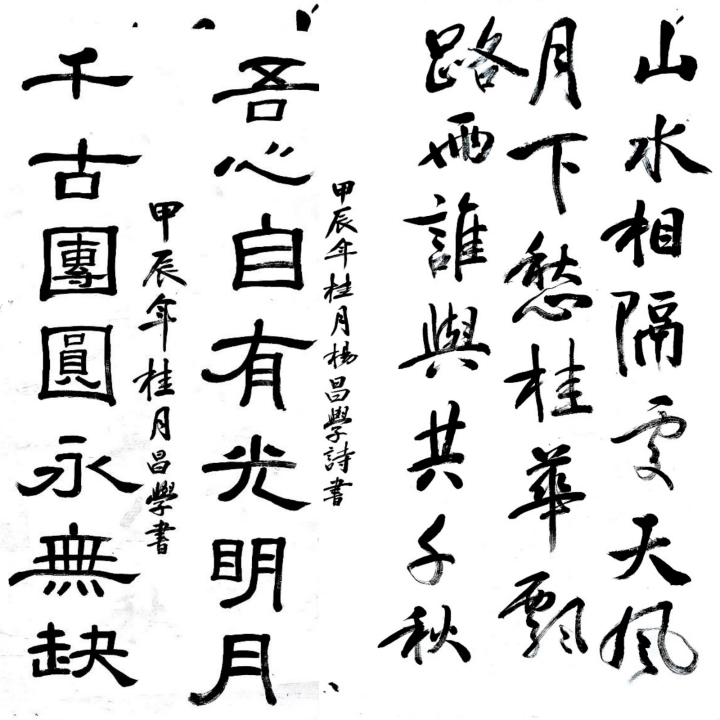 山水相隔天風
月下愁桂華飄
路誰與共千秋
甲辰年桂月楊昌學詩書
吾心自有光明月
甲辰年桂月昌學書
千古團圓永無缺